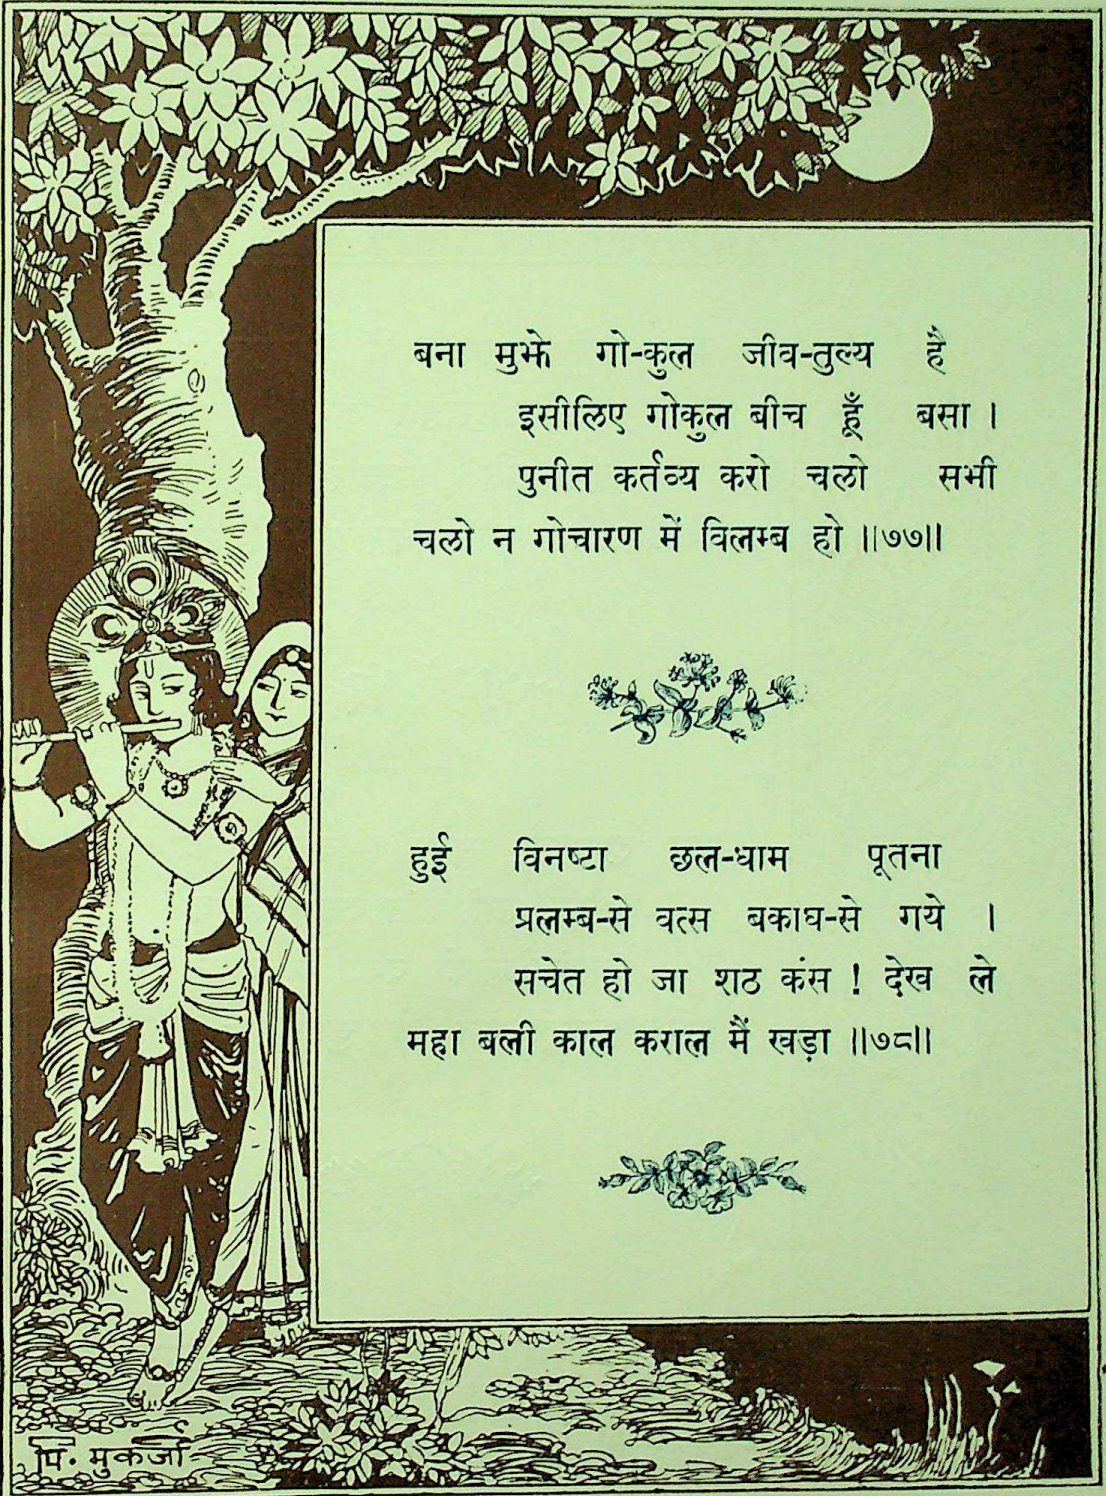 बना मुझे गो-कुल जीव-तुल्य है
इसीलिए गोकुल बीच हूँ बसा ।
पुनीत कर्तव्य करो चलो सभी
चलो न गोचारण में विलम्ब हो ॥७७॥
हुई विनष्टा छल-धाम पूतना
प्रलम्ब-से वत्स बकाघ-से गये ।
सचेत हो जा शठ कंस ! देख ले
महा बली काल कराल मैं खड़ा ॥७८॥
पि. मुकर्जी